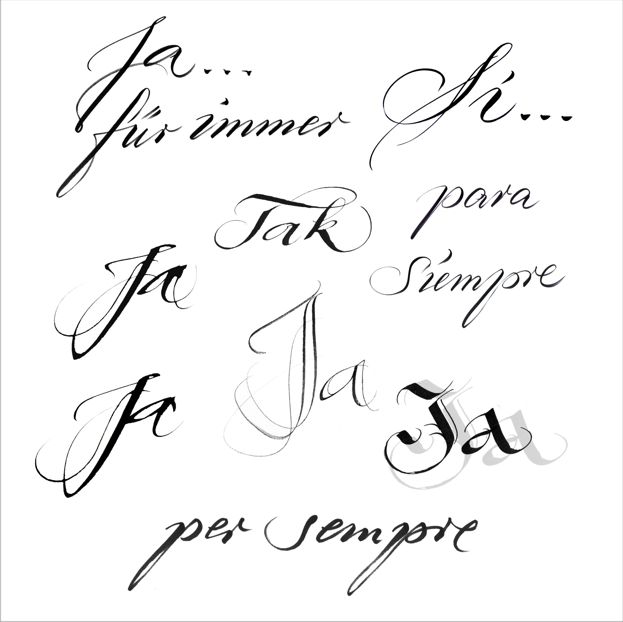 Ja...
für immer
Sí...
Tak
para
siempre
Ja
Ja
Ja
Ja
per sempre